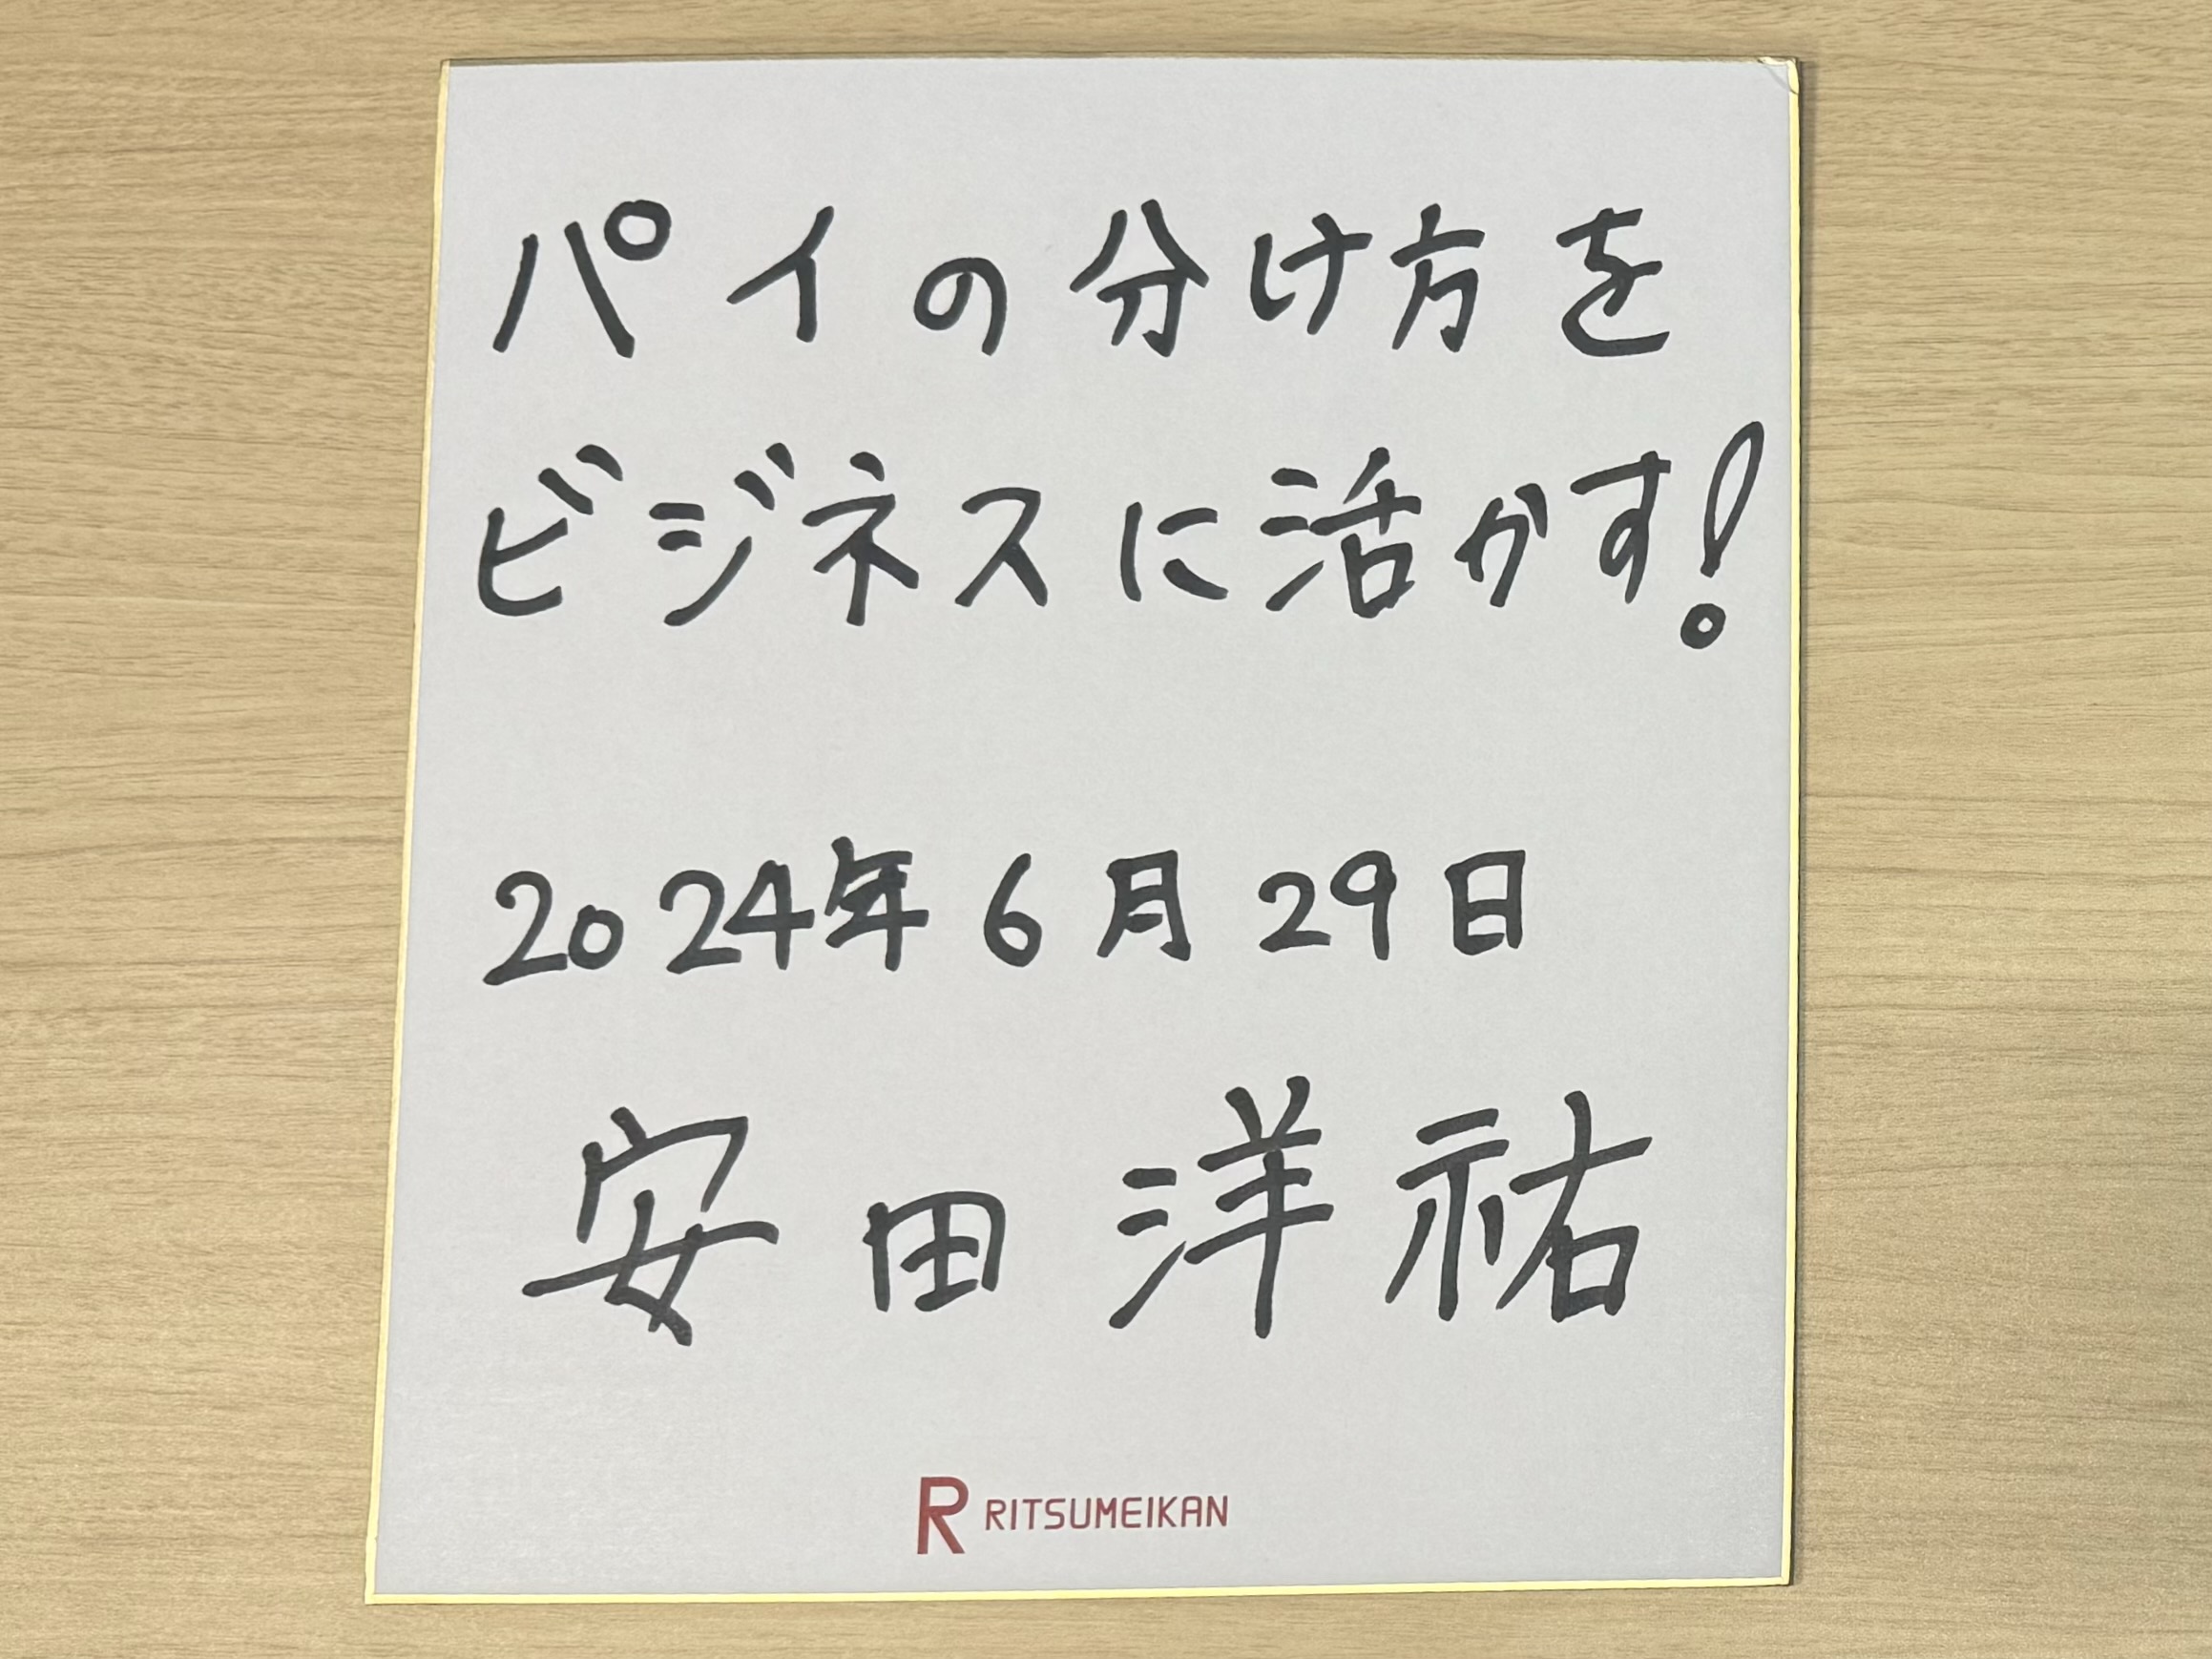 パイの分け方を
ビジネスに活かす!
2024年6月29日
安田洋祐
R RITSUMEIKAN